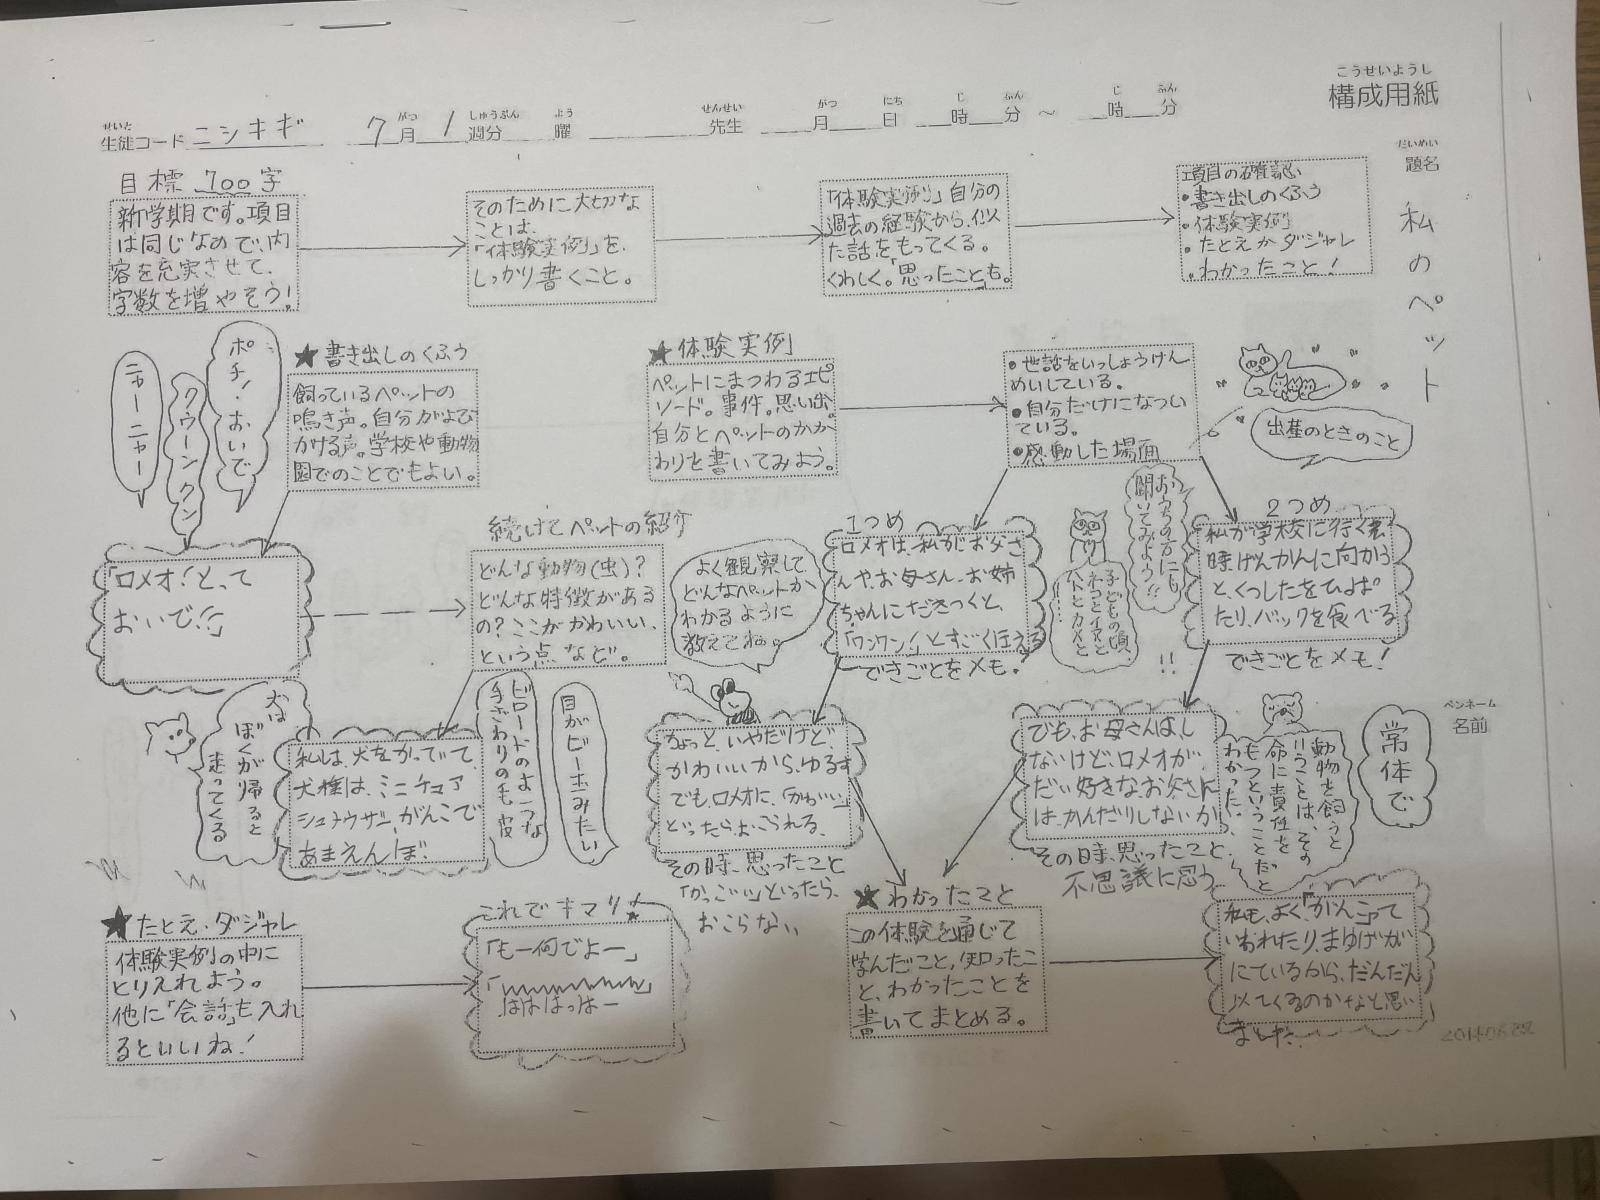 こうせいようし
構成用紙
せいと しゅうぶん よう せんせい がつ にち じ ふん じ ふん
生徒コード ニシキギ 7月 1週分 曜 先生 月 日 時 分 ~ 時 分
だいめい
題名
私のペット
目標 700字
新学期です。項目
は同じなので、内
容を充実させて、
字数を増やそう!
そのために大切な
ことは、
「体験実例」を、
しっかり書くこと。
「体験実例」自分の
過去の経験から、似
た話をもってくる。
くわしく。「思ったこと」も。
項目の確認
・書き出しのくふう
・体験実例
・たとえかダジャレ
・わかったこと!
ポチ!おいで
クウーンクン
ニャーニャー
★書き出しのくふう
飼っているペットの
鳴き声。自分がよび
かける声。学校や動物
園でのことでもよい。
★体験実例
ペットにまつわるエピ
ソード。事件。思い出。
自分とペットのかか
わりを書いてみよう。
・世話をいっしょうけん
めいしている。
・自分だけになつい
ている。
・感動した場面
出産のときのこと
おうちの方にも
聞いてみよう!!
「ロメオ!とって
おいで!」
続けてペットの紹介
どんな動物(虫)?
どんな特徴がある
の?ここがかわいい、
という点など。
よく観察して
どんなペットか
わかるように
教えてね。
1つめ
ロメオは、私がお父さ
んや、お母さん、お姉
ちゃんにだきつくと、
「ワンワン!」とすごくほえる
できごとをメモ!
子どもの頃、
ネコとイヌと
ハトとカメと
……
!!
2つめ
私が学校に行く
時げんかんに向かう
と、くつしたをひっぱっ
たり、バックを食べる
できごとをメモ!
犬は
ぼくが帰ると
走ってくる
私は、犬をかってて、
犬種は、ミニチュア
シュナウザー、がんこで
あまえんぼ、
ビロードのような
手ざわりの毛皮
目がビー玉みたい
ちょっと、いやだけど、
かわいいから、ゆるす
でも、ロメオに、「かわいい」
といったらおこられる、
その時、思ったこと
「かっこいい」といったら、
おこらない、
でも、お母さんはし
ないけど、ロメオが、
だい好きな、お父さん
は、かんだりしないか
その時、思ったこと、
不思議に思う
動物を飼うと
いうことは、その
命に責任を
もつということだと
わかった。
常体で
ペンネーム
名前
★たとえ・ダジャレ
体験実例の中に
とりえれよう。
他に「会話」も入れ
るといいね!
これでキマリ☆
「もー何でよー」
はははっはー
★わかったこと
この体験を通じて
学んだこと、知ったこ
と、わかったことを
書いてまとめる。
私も、よく「がんこ」って
いわれたり、まゆげが
にているから、だんだん
似てくるのかなと思い
ました。